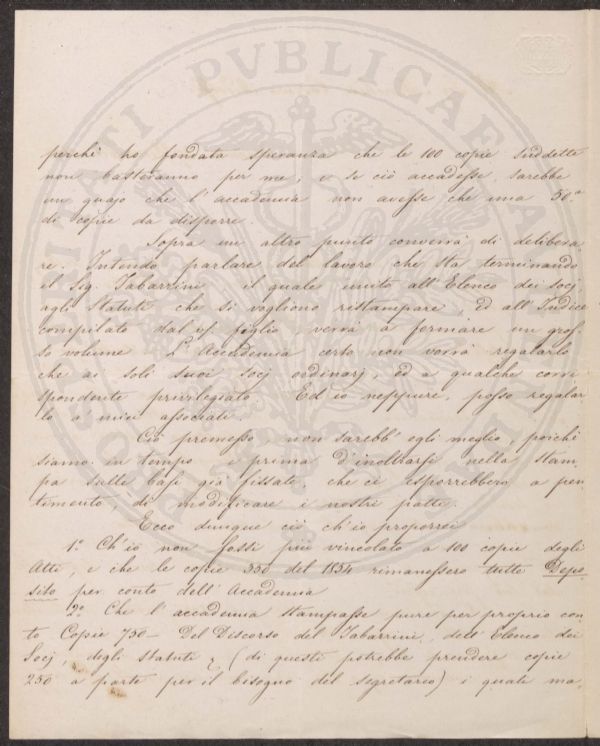 perchè ho fondata speranza che le 100 copie suddette
non basteranno per me; e se ciò accadesse, sarebbe
un guajo che l'accademia non avesse che una 50.na
di copie da disporre.
Sopra un altro punto converrà di delibera
re. Intendo parlare del lavoro che sta terminando
il Sig. Tabarrini il quale unito all'Elenco dei Socj,
agli Statuti che si vogliono ristampare, ed all'Indice
compilato dal figlio, verrà a formare un gros
so volume. L'Accademia certo non vorrà regalarlo
che ai soli suoi socj ordinarj, ed a qualche corri
spondente privilegiato. Ed io neppure, posso regalar
lo a' miei associati.
Ciò premesso non sarebb' egli meglio, poichè
siamo in tempo e prima d'inoltrarsi nella stam
pa sulle basi già fissate, che ci esporrebbero a pen
timento, di modificare i nostri patti.
Ecco dunque ciò ch'io proporrei
1.° Ch'io non fossi più vincolato a 100 copie degli
Atti, e che le copie 350 del 1854 rimanessero tutte Depo
sito per conto dell'Accademia
2.° Che l'accademia stampasse pure per proprio con
to Copie 750 Del Discorso del Tabarrini, dell'Elenco dei
Socj, degli Statuti, (di questi potrebbe prendere copie
250 a parte per il bisogno del segretario) i quali ma,